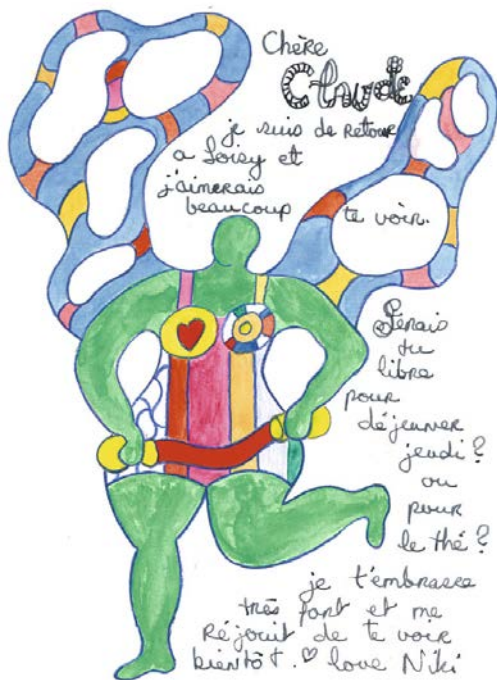 Chère
Claude
je suis de retour
a Soisy et
j'aimerais
beaucoup te voir.
Serais
tu
libre
pour
déjeuner
jeudi?
ou
pour
le thé?
je t'embrasse
très fort et me
réjouit de te voir
bientôt. ♡ love Niki